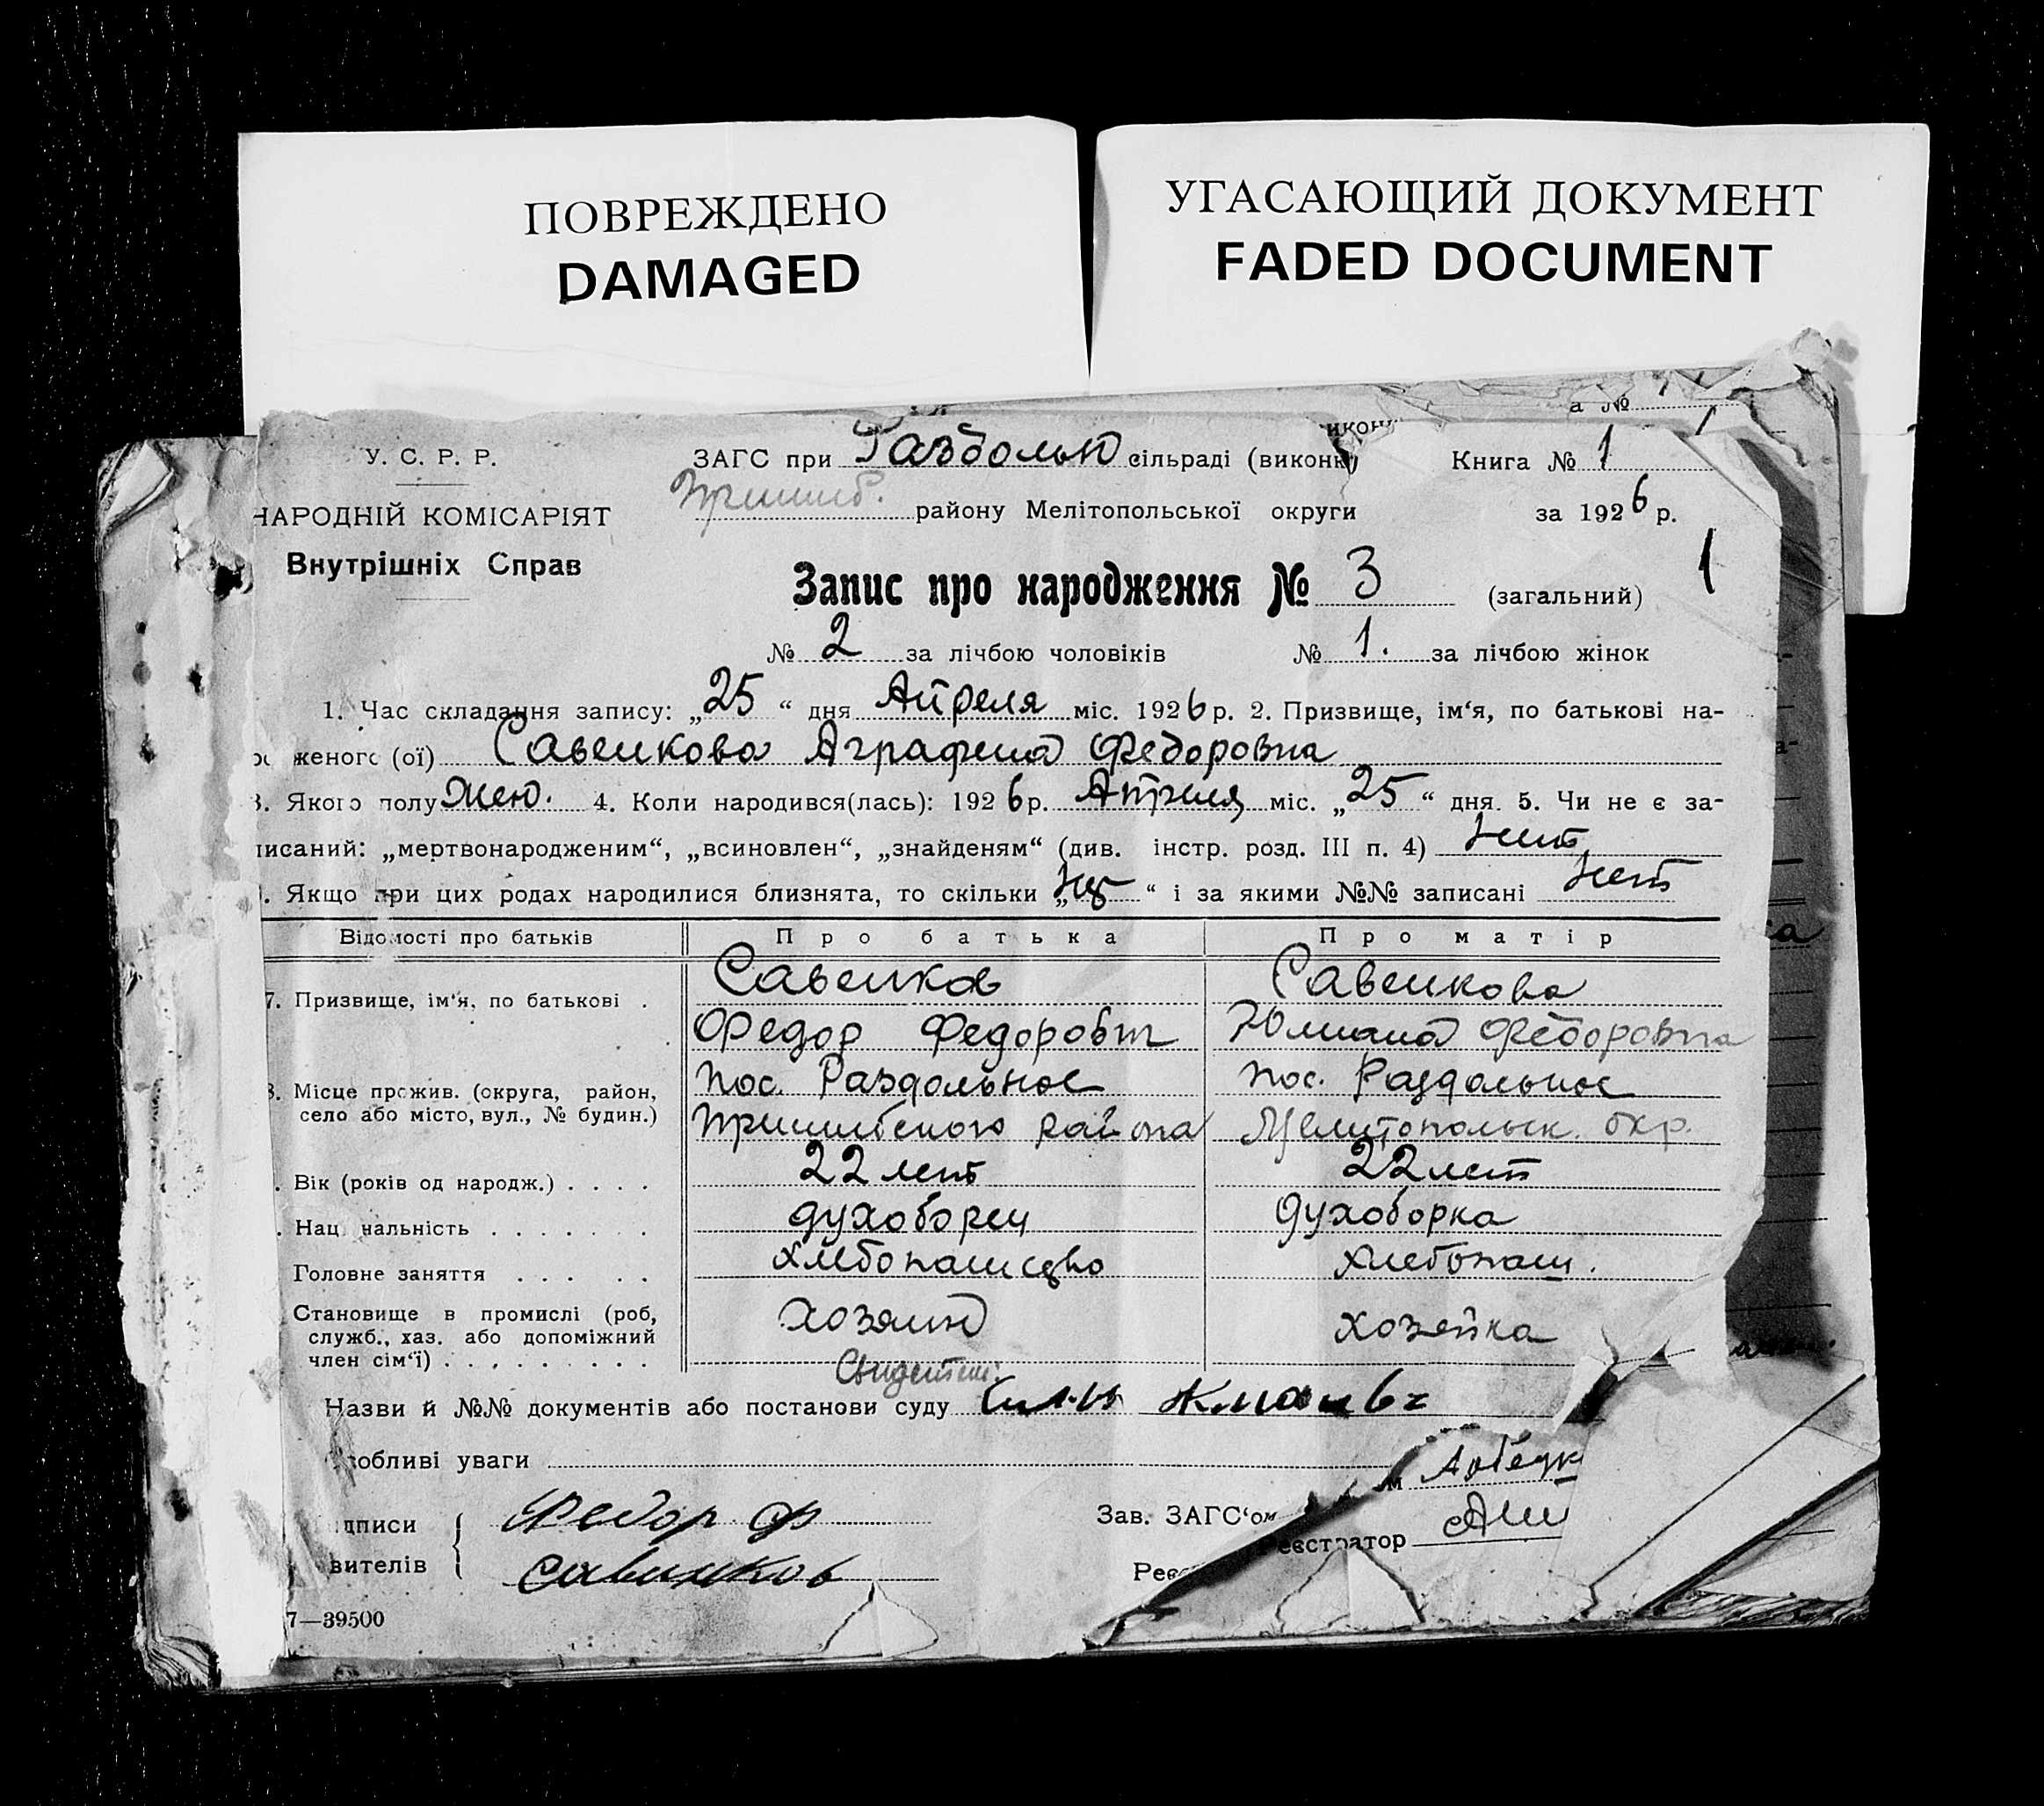 ПОВРЕЖДЕНО
DAMAGED
УГАСАЮЩИЙ ДОКУМЕНТ
FADED DOCUMENT
а №
икон
У. С. Р. Р.
НАРОДНІЙ КОМІСАРІЯТ
Внутрішніх Справ
ЗАГС при Раздольн сільраді (виконк)
Пришиб. району Мелітопольської округи
Книга № 1
за 1926 р.
1
Запис про народження № 3 (загальний)
№ 2 за лічбою чоловіків № 1. за лічбою жінок
1. Час складання запису: „25“ дня Апреля міс. 1926 р. 2. Призвище, ім‘я, по батькові на-
женого (ої) Савенкова Аграфена Федоровна
3. Якого полу жен. 4. Коли народився(лась): 1926 р. Апреля міс. „25“ дня. 5. Чи не є за-
писаний: „мертвонародженим“, „всиновлен“, „знайденям“ (див. інстр. розд. III п. 4) Нет
. Якщо при цих родах народилися близнята, то скільки „ “ і за якими №№ записані Нет
Відомості про батьків Про батька Про матір
7. Призвище, ім‘я, по батькові . Савенков Савенкова
Федор Федорович Юлиана Федоровна
8. Місце прожив. (округа, район, село або місто, вул., № будин.) пос. Раздольное пос. Раздольное
Пришибского района Мелитопольск. окр.
. Вік (років од народж.) . . . . 22 лет 22 лет
. Нац нальність . . . . . . . духоборец духоборка
Головне заняття . . . . . хлебопашество хлебопаш.
Становище в промислі (роб, служб., хаз. або допоміжний член сім‘ї) . . . . . . . . . хозяин хозяйка
Назви й №№ документів або постанови суду
собливі уваги
дписи
вителів
Федор Ф
Савенков
Зав. ЗАГС‘ом
м
Реєс
еєстратор
7—39500